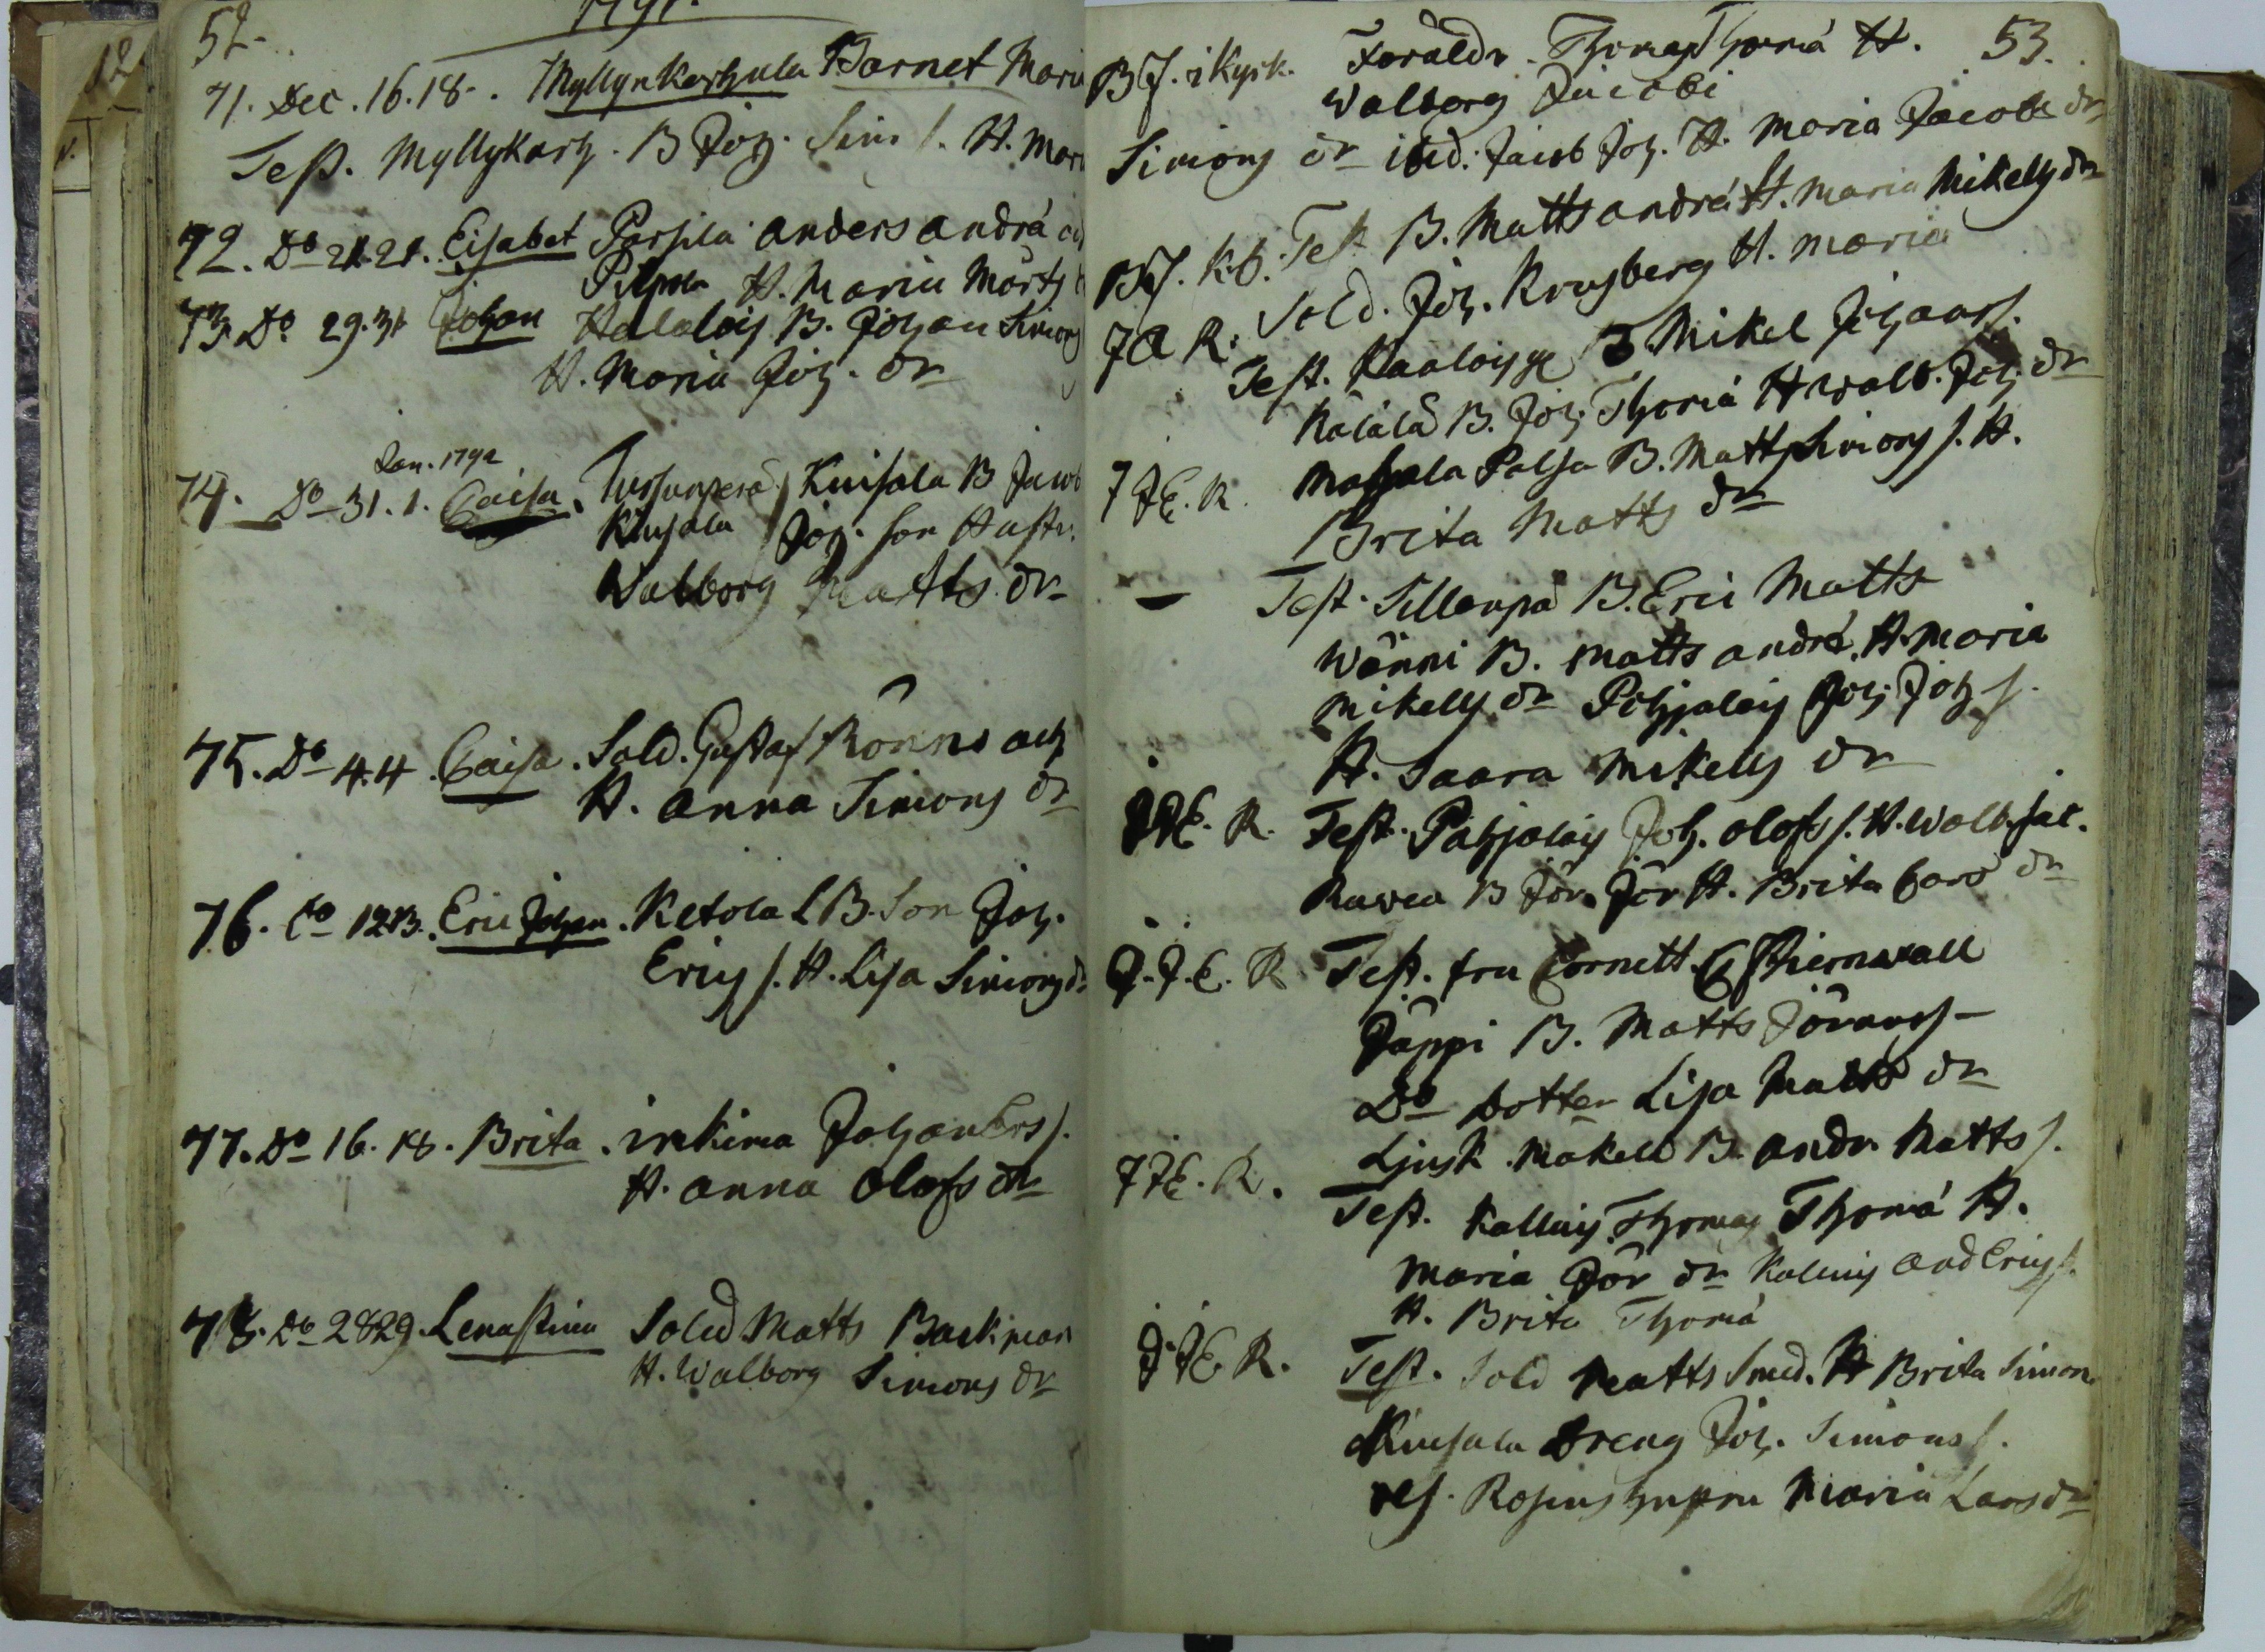 52.
1791.
71. Dec. 16. 18. Myllynkarhula Barnet Mari
Test. Myllykarh. B Joh. Sim s. H. Mari
72. Do 21. 21. Lisabet Parsila anders andrä
H. Maria Märts
73. Do 29. 31 Johan Halalois B. Johan Simons
H. Maria Joh. dr
Jan. 1792
74. Do 31. 1. Caisa. Tursunperä Knisala B Jacob
Knisala Joh. son Hustr.
Walborg Matts dr
75. Do 4. 4. Caisa. Sold. Gustaf Rönns och
H. anna Simons dr
76. Do 12. 13. Eric Johan. Ketola L B. Son Joh.
Erics s. H. Lisa Simons d
77. Do 16. 18. Brita. inkina Johan Ers s.
H. anna Olofs dr
78. Do 28 29. Lenastina Sold Matts Backman
H. Walborg Simons dr
53.
B J. i Kyrk. Föräldr. Thomas Thomä H.
Walborg Jacobi
Simons dr ind. Jacob Joh. H. Maria Jacobs dr
Kb. Test B. Matts andrä H. Maria Mikels dr
Sold. Joh. Krusberg H. Maria
J A R. Test. B Mikel Johans s.
B. Joh. Thomä H Walb. Joh dr
J J E. R. Palsa B. Matts Simons s. H.
Brita Matts dr
— Test. Sillanpä B. Eric Matts
Wänni B. Matts andrä. H. Maria
Mikels dr Pohjalais Joh Joh s.
H. Saara Mikels dr
J J E. R. Test. Pohjolais Joh. olofs s. H. Walb. Jac.
B Jör. Jör H. Brita Caro dr
J. J. E. R Test. fru Cornett C Stiernvall
Jäppi B. Matts Jörans s
Do Dotter Lisa Matts dr
Ljusk. Mäkelä B. andr. Matts s.
J J E. R. Test. Kallnis Thomas Thomä H.
Maria Jör dr Kallnis And Erics s.
H. Brita Thomä
J. J E. R. Test. Sold Matts Smed. H Brita Simon
Knisala Dreng Joh. Simons s.
Maria Lars dr